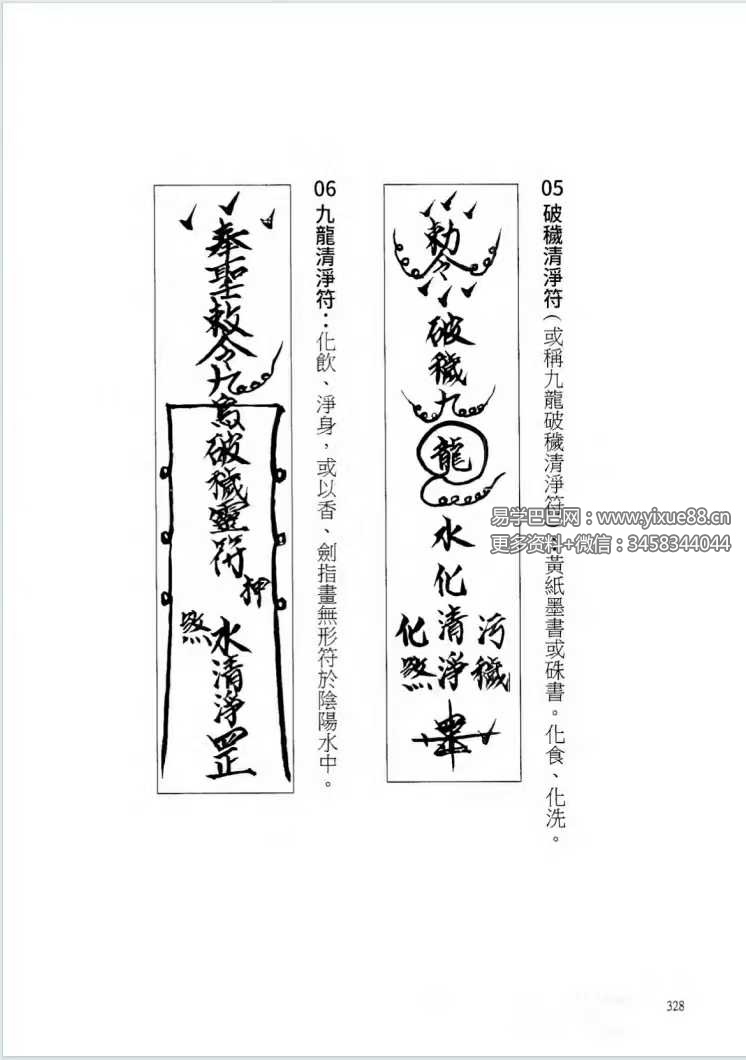 05 破穢清淨符（或稱九龍破穢清淨符）：黃紙墨書或硃書。化食、化洗。
勅令
破穢九龍水化清淨
污穢
化煞
罡
06 九龍清淨符：化飲、淨身，或以香、劍指畫無形符於陰陽水中。
奉聖敕令九鳥破穢靈符
押
煞
水清淨罡
易学巴巴网：www.yixue88.cn
更多资料+微信：3458344044
328